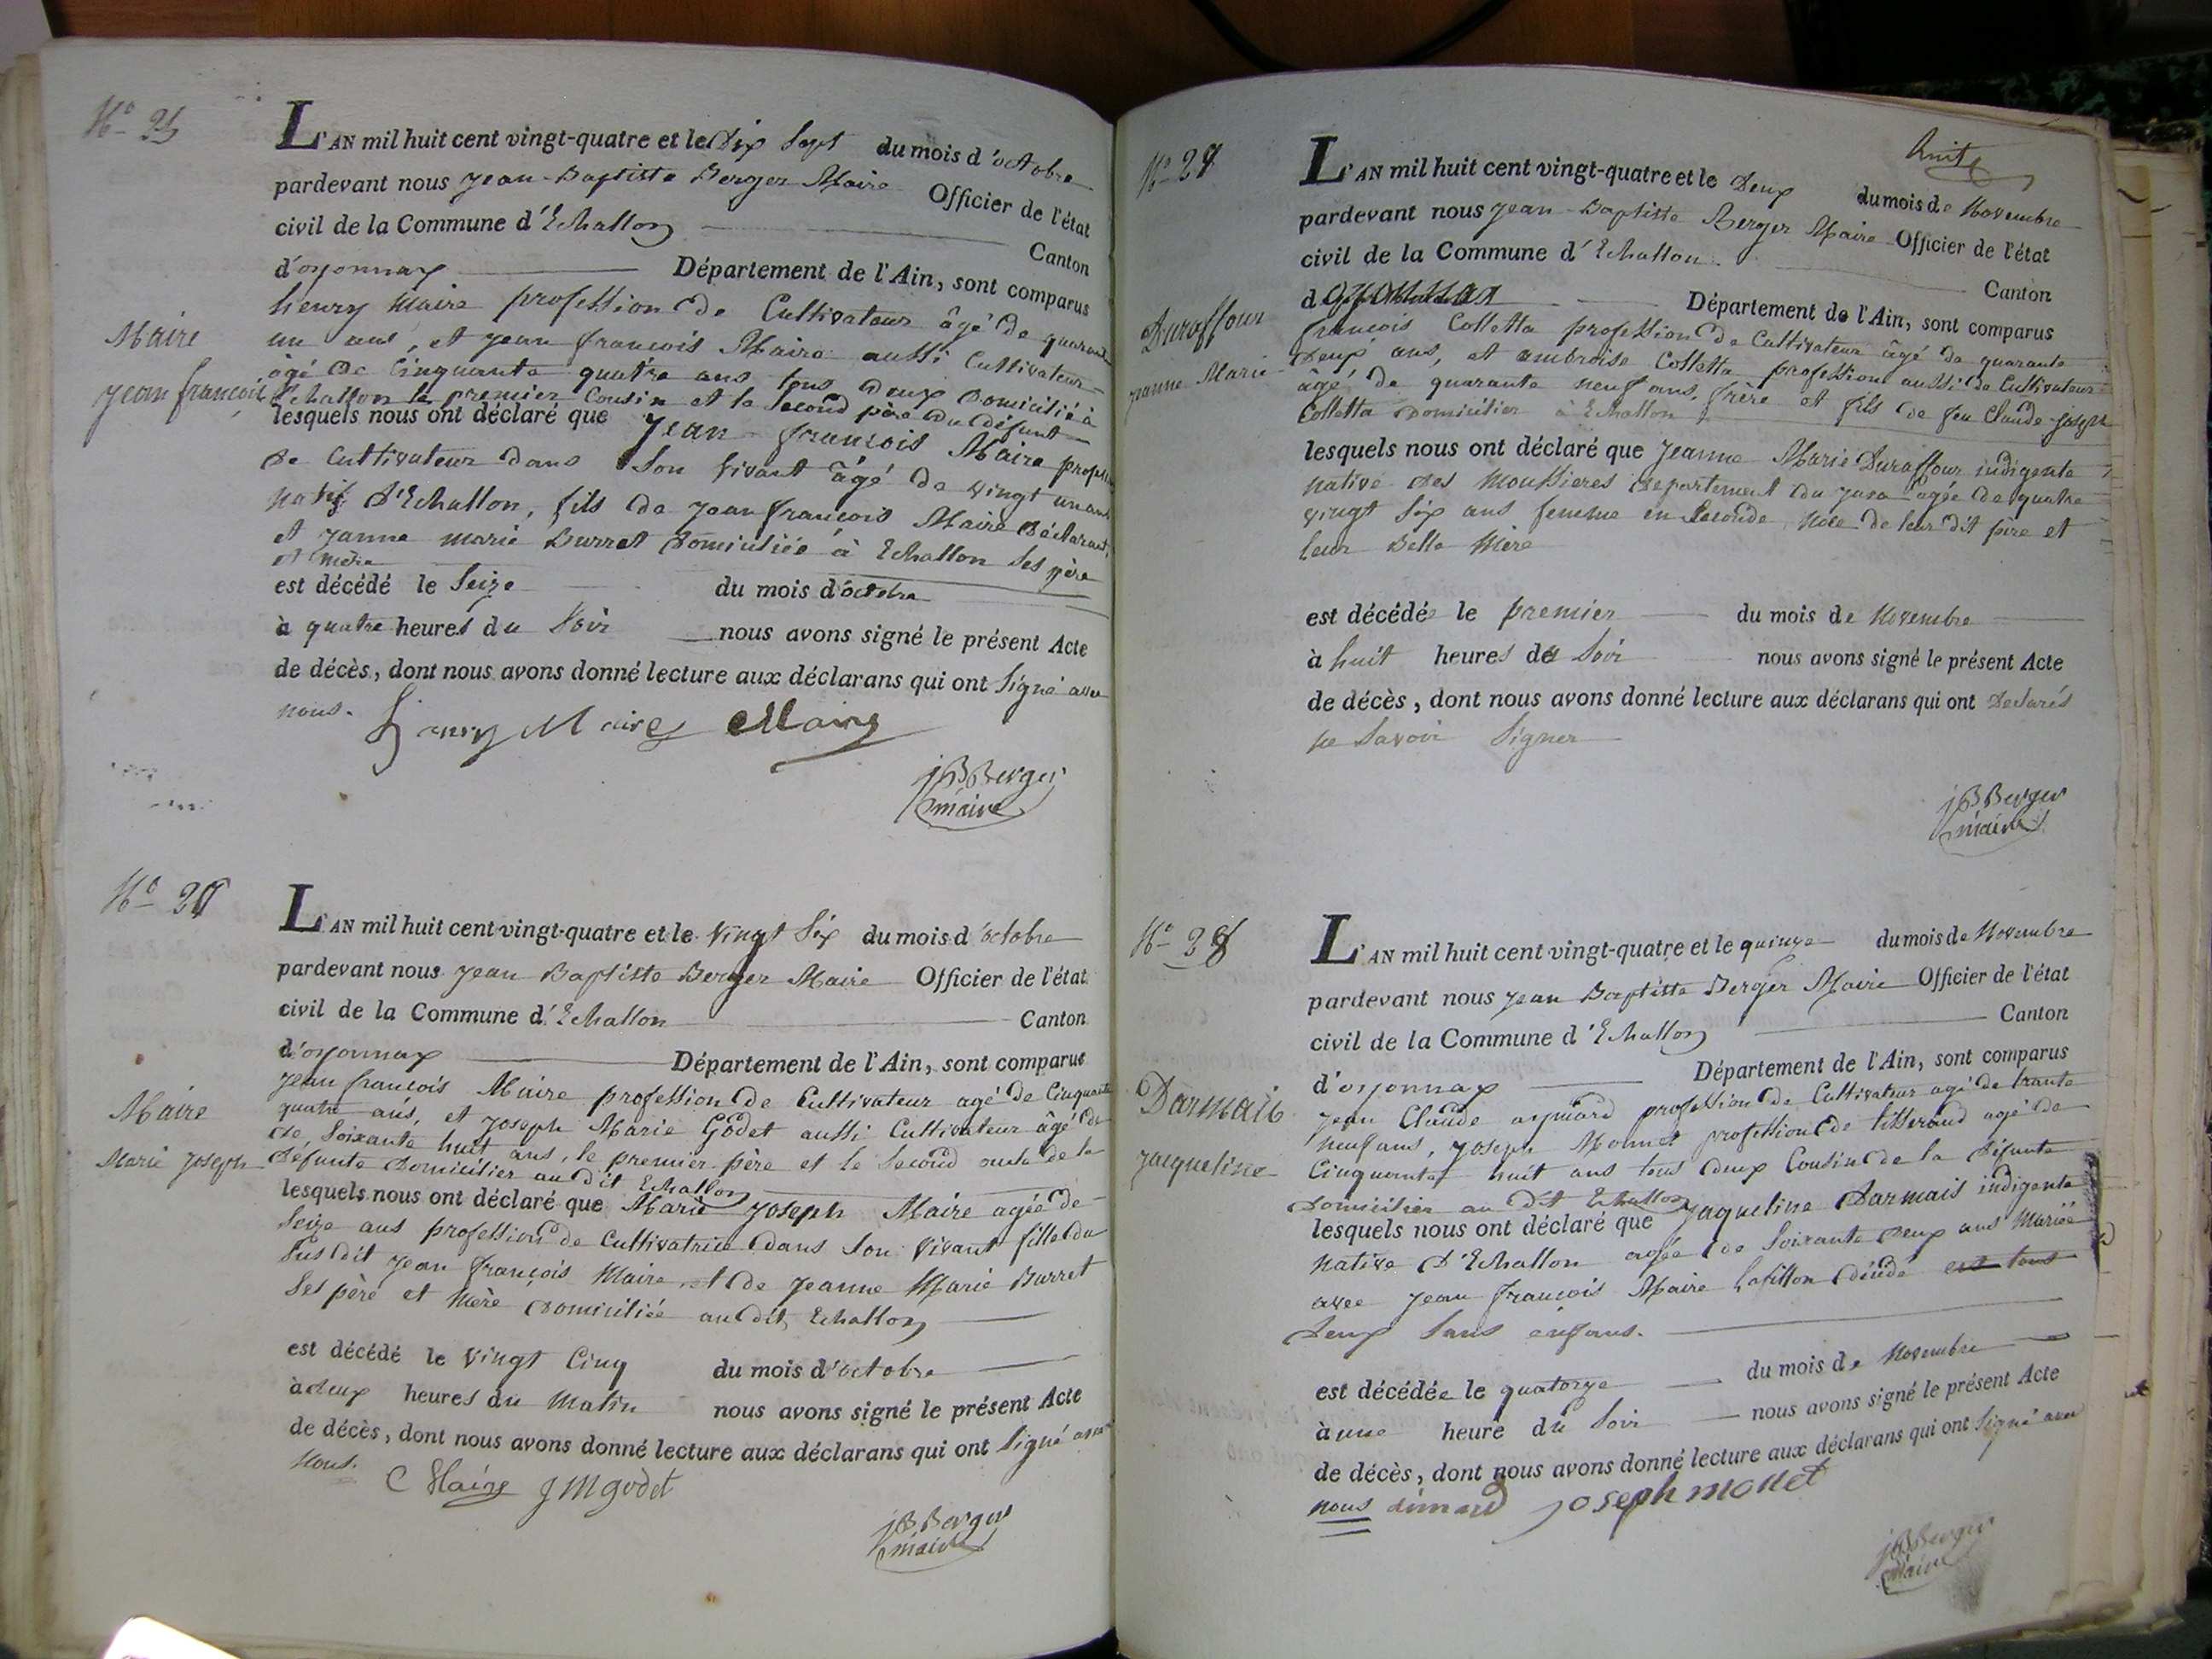 N° 25
L'AN mil huit cent vingt-quatre et le Dix Sept du mois d'octobre
pardevant nous Jean-Baptiste Berger Maire Officier de l'état
civil de la Commune d'Echallon Canton
d'oyonnax Département de l'Ain, sont comparus
henry Maire profession de Cultivateur âgé de quarante
un ans, et Jean françois Maire aussi Cultivateur
âgé de Cinquante quatre ans tous deux Domicilié à
Echallon le premier Cousin et le Second père du défunt
Maire
Jean françois
lesquels nous ont déclaré que Jean-françois Maire profession
de Cultivateur dans Son Vivant âgé de vingt un ans
natif d'Echallon, fils de Jean françois Maire Déclarant
et Janne marie Burret Domiciliée à Echallon Ses père
et mère
est décédé le Seize du mois d'octobre
à quatre heures du Soir nous avons signé le présent Acte
de décès, dont nous avons donné lecture aux déclarans qui ont Signé avec
nous.
henry Maire Maire
JB Berger
maire
N°
L'AN mil huit cent vingt-quatre et le Vingt Six du mois d'octobre
pardevant nous Jean Baptiste Berger Maire Officier de l'état
civil de la Commune d'Echallon Canton
d'oyonnax Département de l'Ain, sont comparus
Jean françois Maire profession de Cultivateur agé de Cinquante
quatre ans, et Joseph Marie Godet aussi Cultivateur âgé de
de Soixante huit ans, le premier père et le Second oncle de la
Defunte Domicilier au dit Echallon
Maire
Marie Joseph
lesquels nous ont déclaré que Marie Joseph Maire agée de
Seize ans profession de Cultivatrice dans Son Vivant fille du
Susdit Jean françois Maire et de Jeanne Marie Burret
Ses père et Mère Domiciliée au dit Echallon
est décédé le Vingt Cinq du mois d'octobre
à deux heures du Matin nous avons signé le présent Acte
de décès, dont nous avons donné lecture aux déclarans qui ont Signé avec
Nous.
Maire JM godet
JB Berger
maire
huit
N° 27
L'AN mil huit cent vingt-quatre et le Deux du mois de Novembre
pardevant nous Jean-Baptiste Berger Maire Officier de l'état
civil de la Commune d'Echallon Canton
d'oyonnax Département de l'Ain, sont comparus
françois Colletta profession de Cultivateur âgé de quarante
Deux ans, et ambroise Colletta profession aussi de Cultivateur
âgé de quarante neuf ans, frère et fils de feu Claude-Joseph
Colletta Domicilier à Echallon
Duraffour
Jeanne Marie
lesquels nous ont déclaré que Jeanne Marie Duraffour indigente
native des Moussieres departement du Jura agée de quatre
vingt Six ans femme en Seconde Noce de leur dit père et
leur Belle Mère
est décédée le premier du mois de Novembre
à huit heures du Soir nous avons signé le présent Acte
de décès, dont nous avons donné lecture aux déclarans qui ont Declarés
ne Savoir Signer
JB Berger
maire
N° 28
L'AN mil huit cent vingt-quatre et le quinze du mois de Novembre
pardevant nous Jean Baptiste Berger Maire Officier de l'état
civil de la Commune d'Echallon Canton
d'oyonnax Département de l'Ain, sont comparus
Jean Claude profession de Cultivateur agé de trante
neuf ans, Joseph Monnet profession de tisserand agé de
Cinquante huit ans tous deux Cousin de la Défunte
Domicilier au dit Echallon
Darmais
Jacqueline
lesquels nous ont déclaré que Jaqueline Darmais indigente
native d'Echallon agée de Soixante Deux ans Mariée
avec Jean françois Maire est tous
Deux Sans enfans.
est décédée le quatorze du mois de Novembre
à une heure du Soir nous avons signé le présent Acte
de décès, dont nous avons donné lecture aux déclarans qui ont Signé avec
nous Joseph monet
JB Berger
Maire